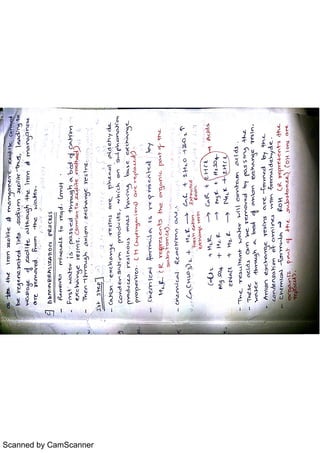 the iron zeolite & manganese zeolite cannot
be regenerated into sodium zeolite thus, leading to
wastage of zeolites although the iron & manganese
are removed from the water.
DEMINERALISATION PROCESS
- Removes minerals to req'd limit
- First water is passed through a bed of cation
exchange resins. (Similar to zeolite method)
- Then through anion exchange resins.
1st step
- Cation exchange resins are phenol aldehyde
condensation products, which on sulphonation
produces resinous mass having base exchange
properties. (H (hydrogen) ions are replaced)
- Chemical formula is represented by
H2R (R represents the organic part of the
substance)
- chemical reactions are:
Ca(HCO3)2 + H2R → CaR + 2H2O + 2CO2 ↑
CaCl2 + H2R → CaR + 2HCl → Acids
MgSO4 + H2R → MgR + H2SO4
2NaCl + H2R → Na2R + 2HCl
- The resultant water will contain acids
- These acids can be removed by passing the
water through a bed of anion exchange resin.
- Anion exchange resins are formed by the
condensation of amines with formaldehyde.
- Chemical formula - ROH (R represents the
organic part of the substance) (OH ions are
replaced)
Scanned by CamScanner